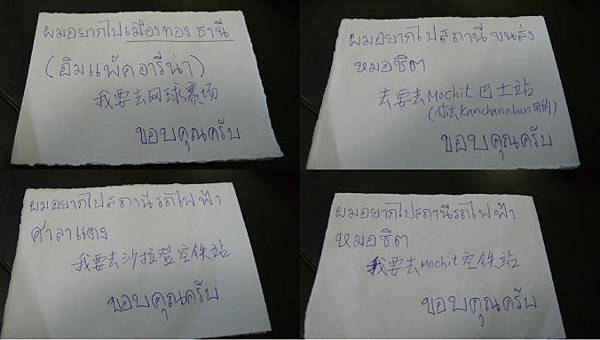 ผมอยากไปเมืองทอง ธานี
(อิมแพ็คอารีน่า)
我要去网球赛场
ขอบคุณครับ
ผมอยากไปสถานี ขนส่ง
หมอชิต
去要去Mochit 巴士站
(你去Kanchanaburi用的)
ขอบคุณครับ
ผมอยากไปสถานีรถไฟฟ้า
ศาลาแดง
我要去沙拉登空铁站
ขอบคุณครับ
ผมอยากไปสถานีรถไฟฟ้า
หมอชิต
我要去Mochit空铁站
ขอบคุณครับ